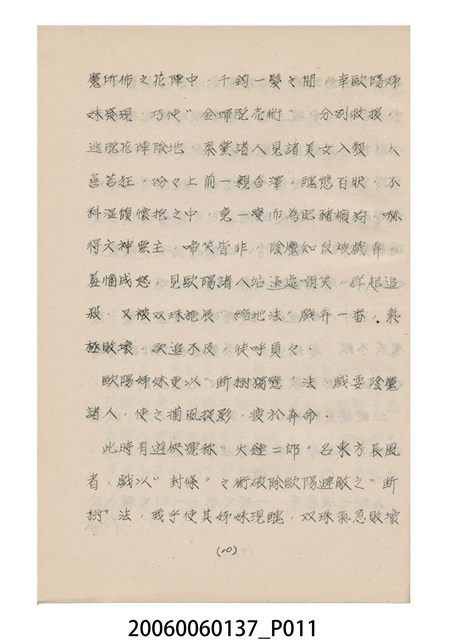 魔所佈之花陣中，千鈞一髮之間，幸歐陽姊
妹發現，巧使"金蟬脫壳術"，分別救援，
逃脫花陣險地，眾黨諸人見諸美女入彀，大
喜若狂，紛々上前一親香澤，醜態百狀，不
料溫馥懷抱之中，竟一變而為肥豬癩狗，
得六神無主，啼笑皆非，陰魔知反被戲弄
羞惱成怒，見歐陽諸人站遠處嘲笑，群起追
殺，又被双珠施展"縮地法"戲弄一番，氣
極敗壞，欲追不及，徒呼負々
歐陽姊妹更以"斷樹獨戀"法，戲耍陰魔
諸人，使之捕風捉影，疲於奔命
此時有遊俠渾稱"火鏈二郎"名東方長風
者，戲以"封條"之術破除歐陽避敵之"斷
樹"法，幾乎使其姊妹現醜，双珠氣急敗壞
(10)
20060060137_P011